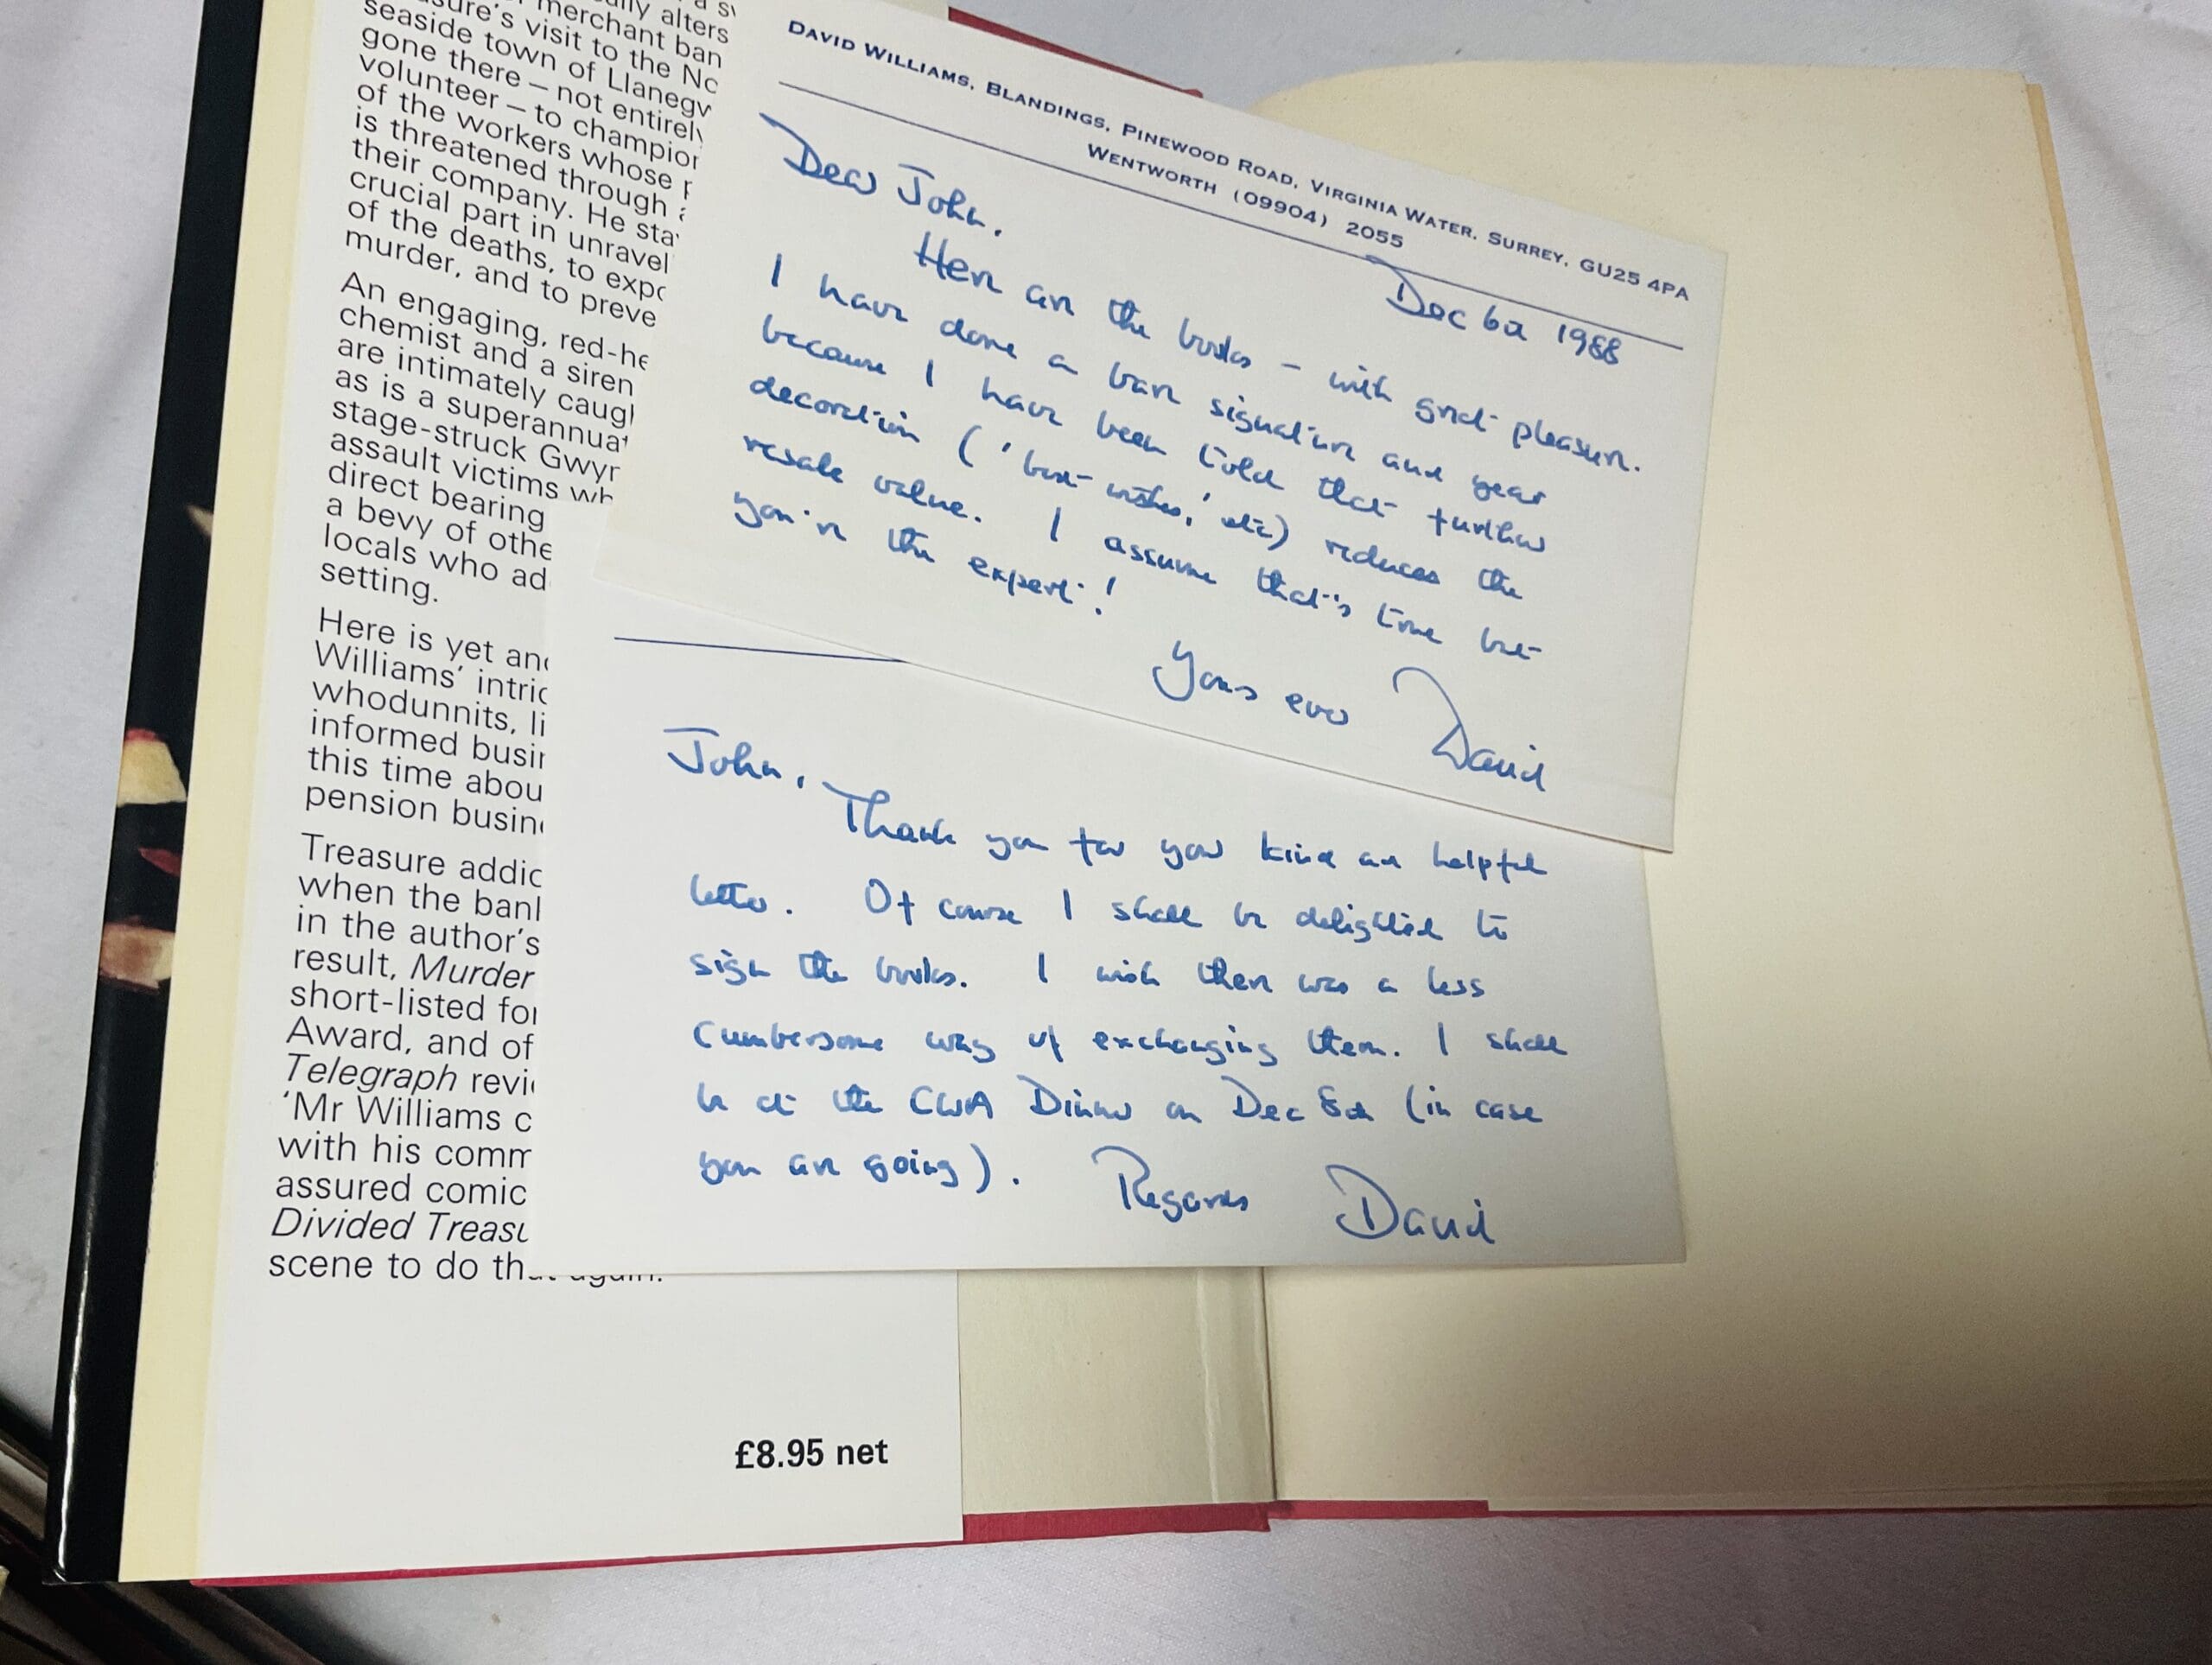 ally alters
merchant ban
sure's visit to the No
seaside town of Llanegw
gone there – not entirely
volunteer – to champion
of the workers whose p
is threatened through a
their company. He sta
crucial part in unravel
of the deaths, to expo
murder, and to preve
An engaging, red-he
chemist and a siren
are intimately caugh
as is a superannuat
stage-struck Gwyn
assault victims wh
direct bearing
a bevy of othe
locals who ad
setting.
Here is yet ano
Williams' intric
whodunnits, li
informed busin
this time abou
pension busine
Treasure addic
when the bank
in the author's
result, Murder
short-listed for
Award, and of
Telegraph revie
'Mr Williams c
with his comm
assured comic
Divided Treasu
scene to do that again.
£8.95 net
DAVID WILLIAMS, BLANDINGS, PINEWOOD ROAD, VIRGINIA WATER, SURREY, GU25 4PA
WENTWORTH (09904) 2055
Dec 6th 1988
Dear John,
Here are the books – with great pleasure.
I have done a bare signature and year
because I have been told that further
decoration ('best wishes,' etc) reduces the
resale value. I assume that's true but
you're the expert!
Yours ever David
John,
Thank you for your kind and helpful
letter. Of course I shall be delighted to
sign the books. I wish there was a less
cumbersome way of exchanging them. I shall
be at the CWA Dinner on Dec 8th (in case
you are going). Regards David